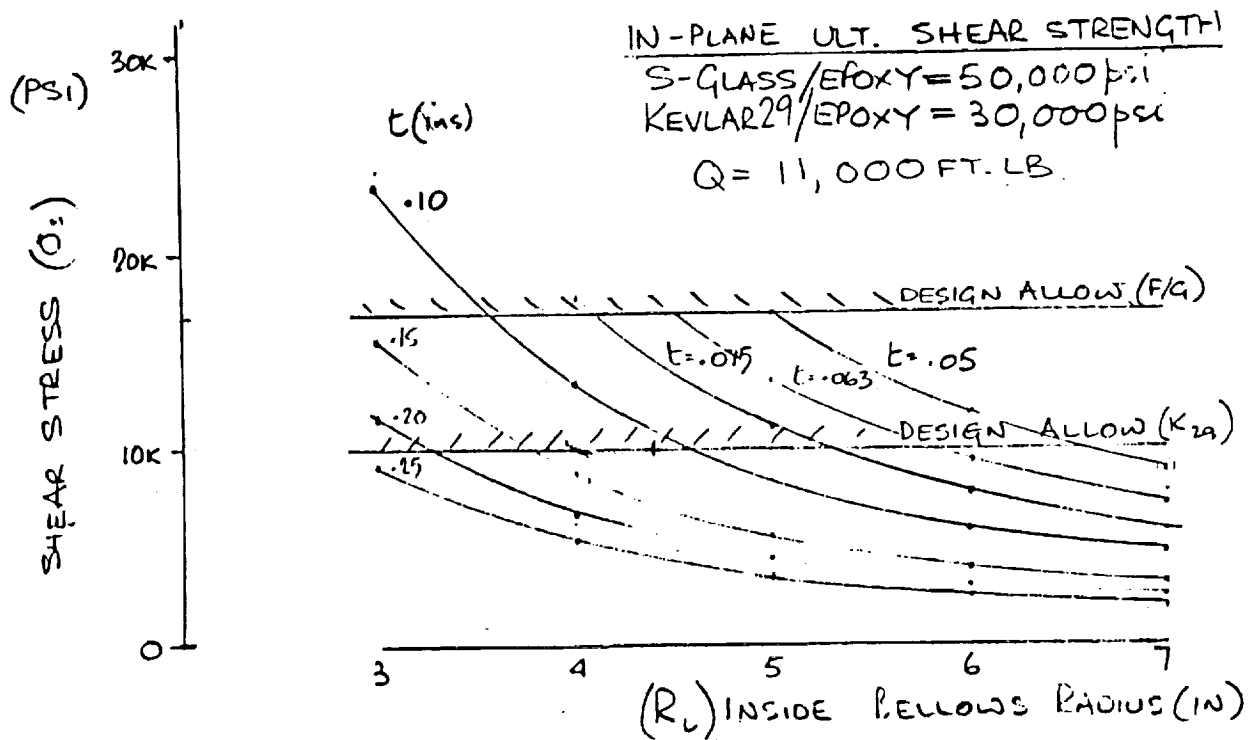 IN-PLANE ULT. SHEAR STRENGTH
S-GLASS/EPOXY = 50,000 psi
KEVLAR29/EPOXY = 30,000 psi
Q = 11,000 FT. LB.
(PSI)
SHEAR STRESS
30K
20K
10K
0
t (ins)
.10
.15
.20
.25
DESIGN ALLOW. (F/G)
t=.075
t=.063
t=.05
DESIGN ALLOW (K29)
3 4 5 6 7
INSIDE BELLOWS RADIUS (IN)